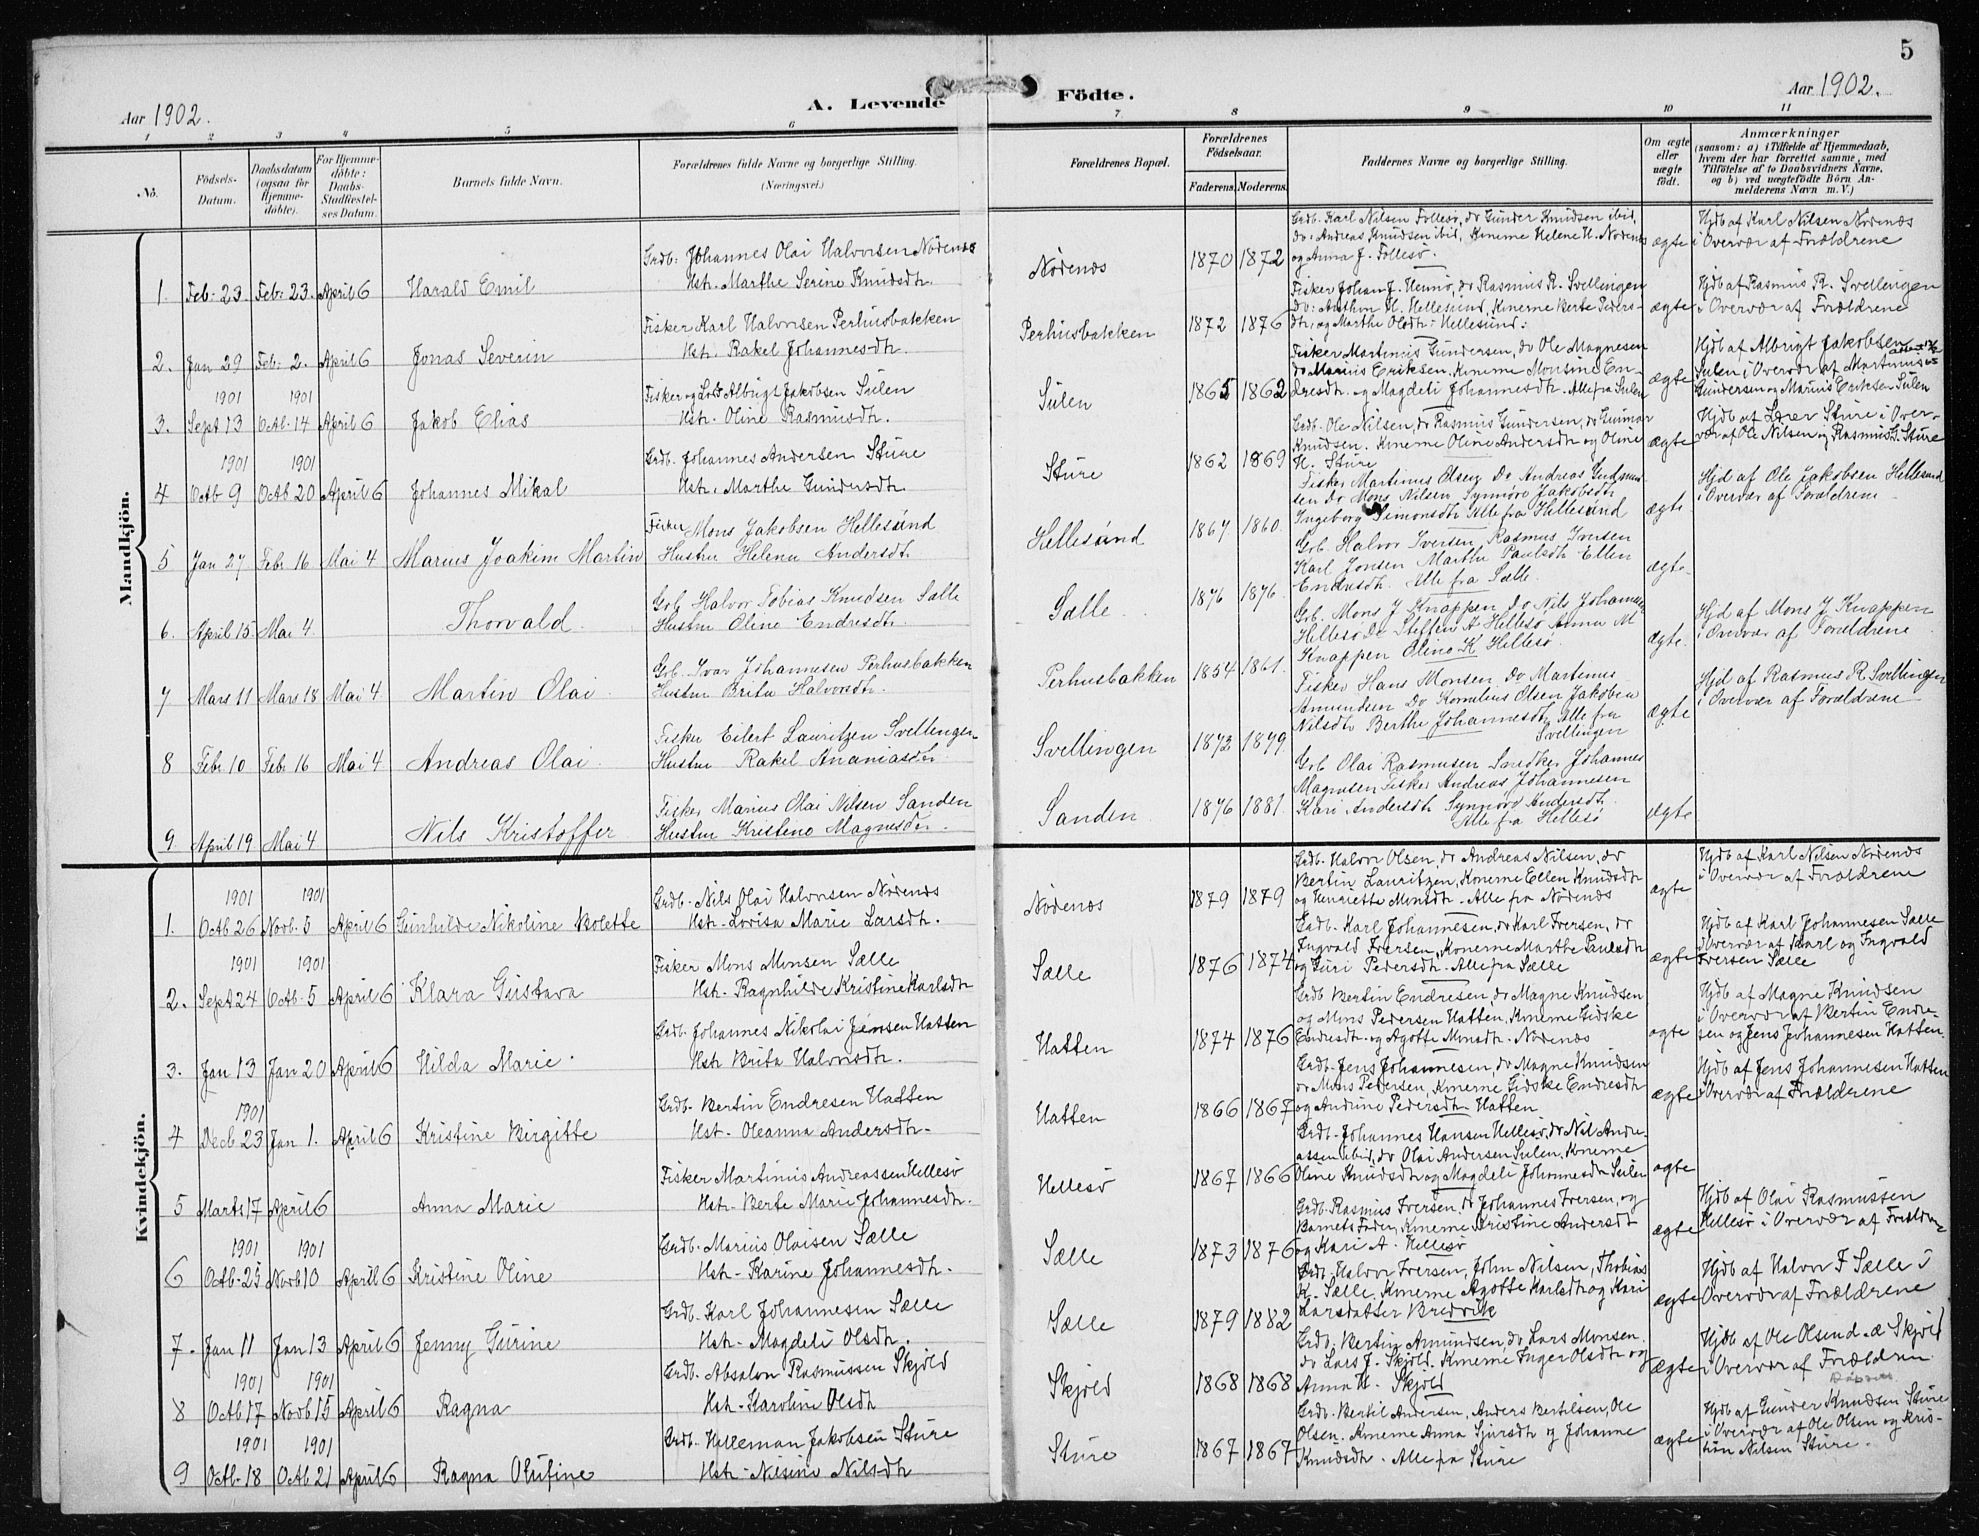 5
Aar 1902.
A. Levende Födte.
Aar 1902.
1 2 3 4 5 6 7 8 9 10 11
No.
Födsels-Datum.
Daabsdatum (ogsaa for Hjemme-döbte).
For Hjemme-döbte: Daabs-Stadfæstel-ses Datum.
Barnets fulde Navn.
Forældrenes fulde Navne og borgerlige Stilling. (Næringsvei.)
Forældrenes Bopæl.
Forældrenes Födselsaar.
Faderens. Moderens.
Faddernes Navne og borgerlige Stilling.
Om ægte eller uægte födt.
Anmærkninger
(saasom: a) i Tilfælde af Hjemmedaab, hvem der har forrettet samme, med Tilföielse af to Daabsvidners Navne, og b) ved uægtefödte Börn An-melderens Navn m. V.)
Mandkjön.
Grdb. Karl Nilsen Follesø, do Gunder Knudsen ibid,
do: Andreas Knudsen ibid, Knerne Helene H. Nødenæs
og Anna J. Follesø.
Hjdb af Karl Nilsen Nödenæs
i Overvær af Forældrene
Grdb: Johannes Olai Halvorsen Nödenæs
1. Feb. 23 Feb. 23. April 6 Harald Emil Hst. Marthe Serine Knudsdtr. Nödenæs 1870 1872 ægte
Fisker Johan J. Heimö, do Rasmus R. Svellingen
do: Anthon H. Hellesund, Knerne Berte Peders-
dtr, og Marthe Olsdtr. Hellesund.
Hjdb af Rasmus R. Svellingen
i Overvær af Forældrene
Fisker Karl Halvorsen Perhusbakken
2. Jan 29 Feb. 2. April 6 Jonas Severin Hst. Rakel Johannesdtr. Perhusbakken 1872 1876 ægte
Fisker Martinus Gundersen, do Ole Magnesen
do Marius Eriksen, Knerne Monsine En-
dresdtr. og Magdeli Johannesdtr. Alle fra Sulen
Hjdb af Albrigt Jakobsen
Sulen i Overvær af Martinus
Gundersen og Marius Eriksen Sulen
1901 1901
Fisker og Albrigt Jakobsen Sulen
3. Sept 13 Octb. 14 April 6 Jakob Elias Hst. Oline Rasmusdtr. Sulen 1865 1862 ægte
Grdb. Ole Nilsen, do Rasmus Gundersen, do Gunnar
Knudsen. Knerne Oline Andersdtr og Oline
H. Sture
Hjdb af Lærer Sture i Over-
vær af Ole Nilsen og Rasmus G. Sture
1901 1901
Grdb. Johannes Andersen Sture
4 Octb 9 Octb 20 April 6 Johannes Mikal Hst. Marthe Gundersdtr Sture 1862 1869 ægte
Fisker Martinus Olsen Do Andreas Gudmun
sen Do Mons Nilsen Synnöve Jakobsdtr
Ingeborg Simonsdtr Alle fra Hellesund
Hjd af Ole Jakobsen Hellesund
i Overvær af Forældrene
Fisker Mons Jakobsen Hellesund
5 Jan 27 Febr 16 Mai 4 Marius Joakim Martin Hustru Helena Andersdtr. Hellesund 1867 1860. ægte
Grb. Halvor Iversen, Rasmus Iversen
Karl Jonsen Marthe Paulsdtr Ellen
Endresdtr. Alle fra Sælle.
Grb. Halvor Tobias Knudsen Sælle
6. April 15 Mai 4. Thorvald. Hustru Oline Endresdtr. Sælle 1876 1876. ægte.
Grb. Mons J Knappen Do Nils Johannesen
Hellesö Do Steffen A Hellesö Anna M
Knappen Oline K Hellesö
Hjd af Mons J Knappen
i Overvær af Forældrene
Grb. Ivar Johannesen Perhusbakken
7 Mars 11 Mars 18 Mai 4. Martin Olai Hustru Brita Halvorsdtr. Perhusbakken 1854 1861. ægte.
Fisker Hans Monsen Do Martinus
Amundsen Do Kornelius Olsen Jakobea
Nilsdtr Berthe Johannesdtr Alle fra
Svellingen
Hjd af Rasmus R Svellingen
i Overvær af Forældrene
Fisker Eilert Lauritzen Svellingen
8 Febr 10 Febr 16 Mai 4 Andreas Olai Hustru Rakel Ananiasdtr Svellingen 1873 1879. ægte
Grb Olai Rasmusen Snedker Johannes
Magnusen Fisker Andreas Johannesen
Kari Andersdtr Synnöve Andersdtr.
Alle fra Hellesö
Fisker Marius Olai Nilsen Sanden
9 April 19 Mai 4 Nils Kristoffer Hustru Kristine Magnesdtr. Sanden 1876 1881. ægte
Kvindekjön.
Grdb. Halvor Olsen, do Andreas Nilsen, do
Bertin Lauritzen, Knerne Ellen Knudsdtr
og Henriette Monsdtr. Alle fra Nödenæs
Hjdb af Karl Nilsen Nödenæs
i Overvær af Forældrene
1901 1901
Grdb. Nils Olai Halvorsen Nödenæs
1. Octb 26 Novb. 5 April 6 Gunhilde Nikoline Bolette Hst. Lovisa Marie Larsdtr. Nödenæs 1879 1879 ægte
Gadb. Karl Johannesen, do Karl Iversen, do
Ingvald Iversen, Konerne Marthe Paulsdtr
og Guri Pedersdtr. Alle fra Sælle
Hjdb af Karl Johannesen Sælle
i Overvær af Karl og Ingvald
Iversen Sælle
1901 1901
Fisker Mons Monsen Sælle
2. Sept 24 Octb. 5 April 6 Klara Gustava Hst. Ragnhilde Kristine Karlsdtr Sælle 1876 1874 ægte
Grdb Bertin Endresen, do Magne Knudsen
og Mons Pedersen Hatten, Knerne Gidske
Endresdtr. og Agotte Monsdtr. Nödenæs
Hjdb af Magne Knudsen
i Overvær af Bertin Endre-
sen og Jens Johannesen Hatten.
Grdb. Johannes Nikolai Jensen Hatten
3. Jan 13 Jan 20 April 6 Hilda Marie Hst. Brita Halvorsdtr. Hatten 1874 1876 ægte
Grdb. Jens Johannesen, do Magne Knudsen
do Mons Pedersen, Knerne Gidske Endresdtr
og Andrine Pedersdtr. Hatten
Hjdb af Jens Johannesen Hatten
i Overvær af Forældrene
1901
Grdb. Bertin Endresen Hatten
4 Decb. 23 Jan 1. April 6 Kristine Birgitte Hst. Oleanna Andersdtr. Hatten 1866 1867 ægte
Grdb. Johannes Hansen Hellesö, do Nil Andre-
assen ibid, do Olai Andersen Sulen, Knerne
Oline Knudsdtr og Magdeli Johannesdtr Sulen
Fisker Martinus Andreassen Hellesö
5 Marts 17 April 6 Anna Marie Hst. Berte Marie Johannesdtr. Hellesö 1867 1866 ægte
Grdb. Rasmus Iversen, do Johannes Iversen, og
Barnets Fader, Knerne Kristine Andersdt
og Kari A. Hellesö
Hjdb af Olai Rasmussen
Hellesö i Overvær af Forældrene
1901 1901
Grdb. Marius Olaisen Sælle
6 Octb. 25 Novb 10 April 6 Kristine Oline Hst. Karine Johannesdtr. Sælle 1873 1876 ægte
Grdb. Halvor Iversen, John Nilsen, Thobias
K. Sælle. Knerne Agotte Karlsdtr og Kari
Larsdatter Bredvik
Hjdb af Halvor I Sælle i
Overvær af Forældrene
Grdb. Karl Johannesen Sælle
7. Jan 11 Jan 13 April 6 Jenny Gurine Hst. Magdeli Olsdtr. Sælle 1879 1882 ægte
Grdb. Bertin Amundsen, do Lars Monsen.
do Lars J. Skjold. Knerne Inger Olsdtr og
Anna H. Skjold
Hjdb af Ole Olsen d. æ Skjold
i Overvær af Forældren
1901 1901
Grdb. Absalon Rasmussen Skjold
8 Octb 17 Novb 15 April 6 Ragna Hst. Karoline Olsdt Skjold 1868 1868 ægte
Grdb. Bertil Andersen, Anders Bertilsen, Ole
Olsen. Knerne Anna Sjursdtr og Johanne
Knudsdtr. Alle fra Sture
Hjdb af Gunder Knudsen Sture
i Overvær af Ole Olsen og Kris-
tian Nilsen Sture.
1901 1901
Grdb. Halleman Jakobsen Sture
9 Octb. 18 Octb 21 April 6 Ragna Olufine Hst. Nilsine Nilsdtr Sture 1867 1867 ægte